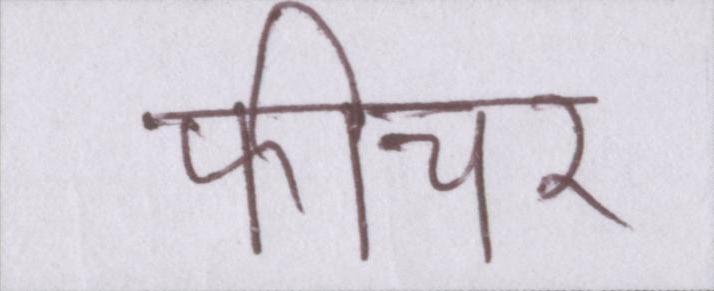 फीचर